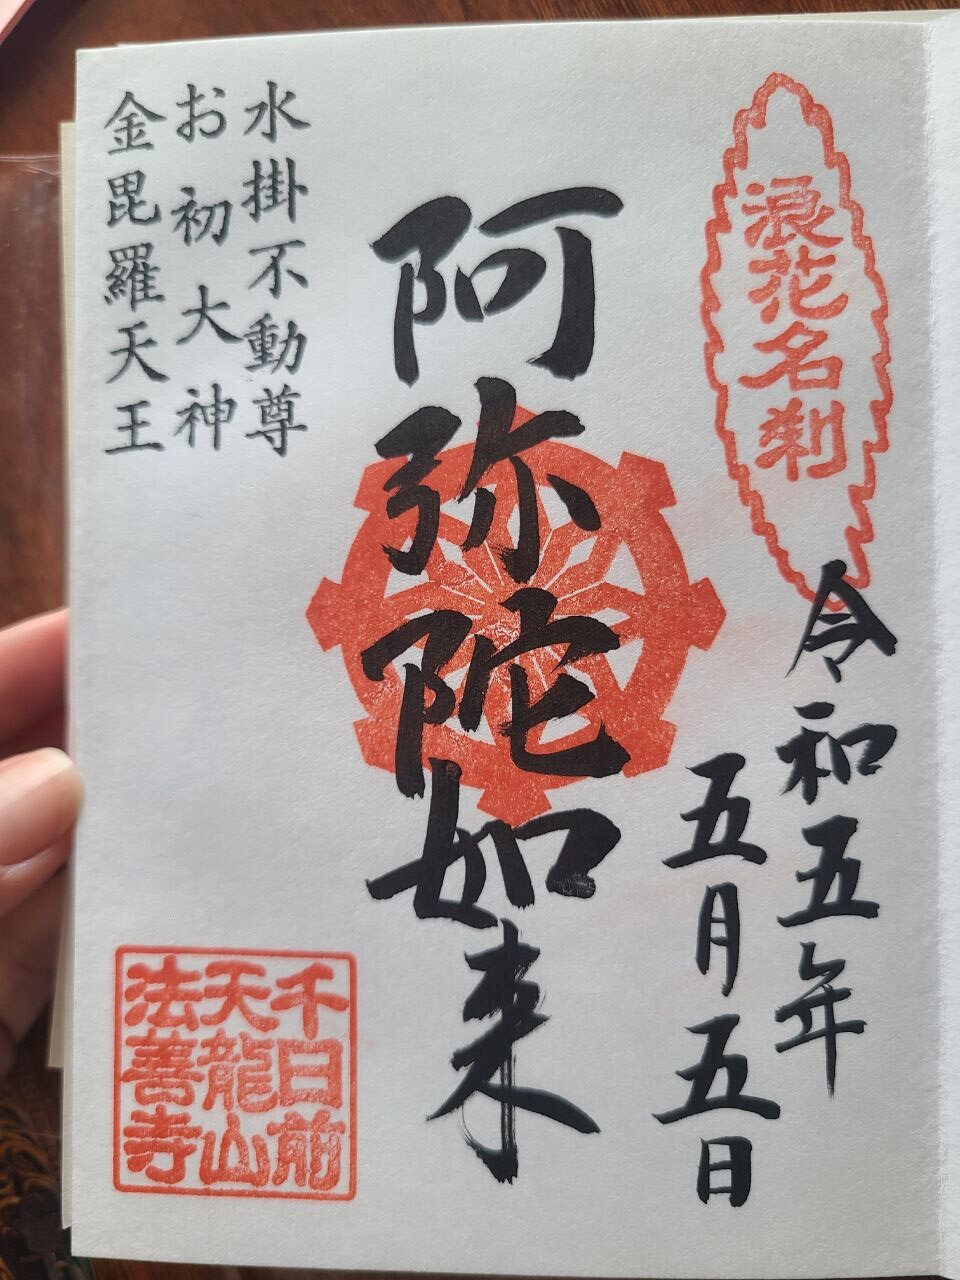 浪花名刹
令和五年
五月五日
阿弥陀如来
水掛不動尊
お初大神
金毘羅天王
千日前
天龍山
法善寺